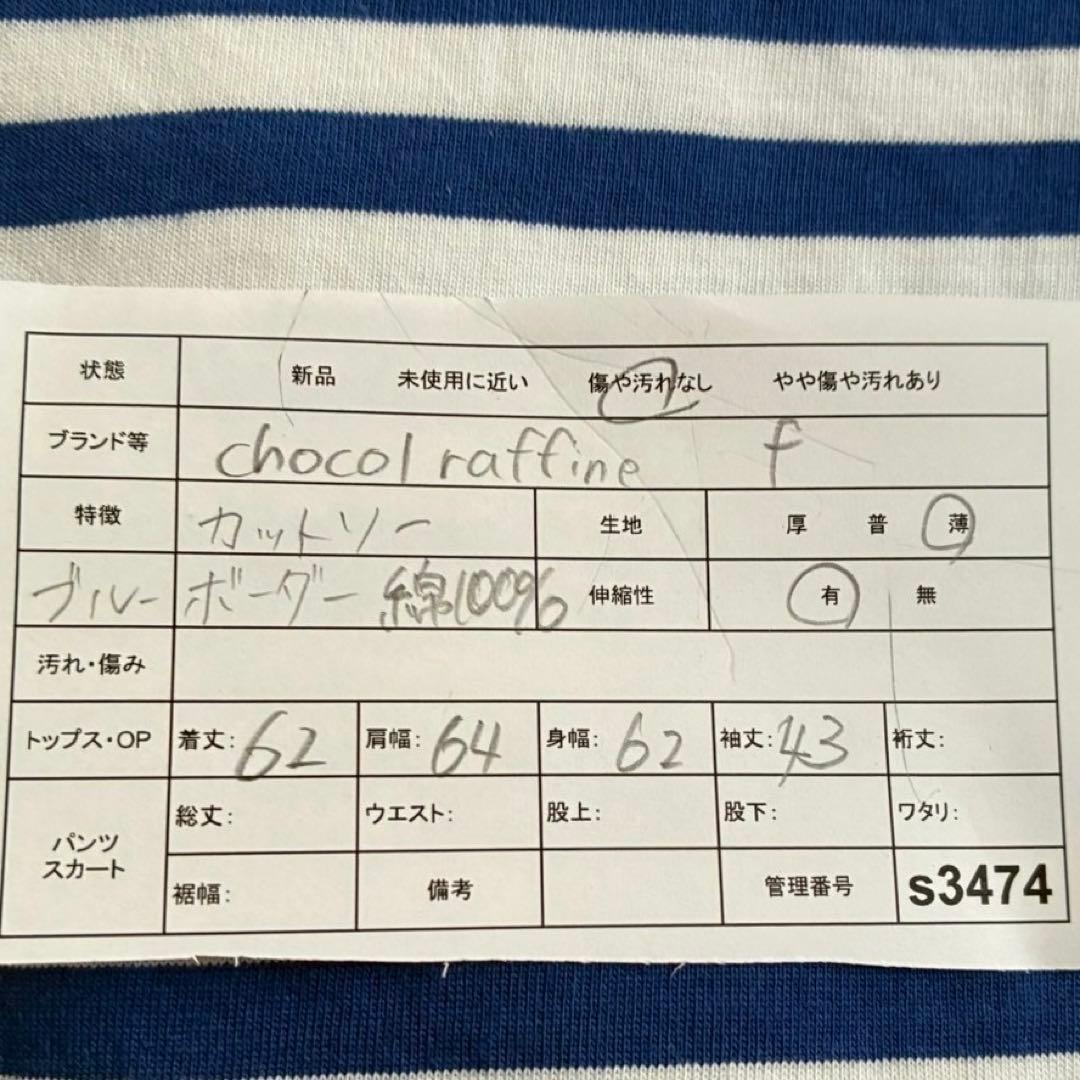 状態 新品 未使用に近い 傷や汚れなし やや傷や汚れあり
ブランド等 chocol raffine f
特徴 カットソー 生地 厚 普 薄
ブルー ボーダー 綿100% 伸縮性 有 無
汚れ・傷み
トップス・OP 着丈: 62 肩幅: 64 身幅: 62 袖丈: 43 裄丈:
パンツ スカート 総丈: ウエスト: 股上: 股下: ワタリ:
裾幅: 備考 管理番号 s3474